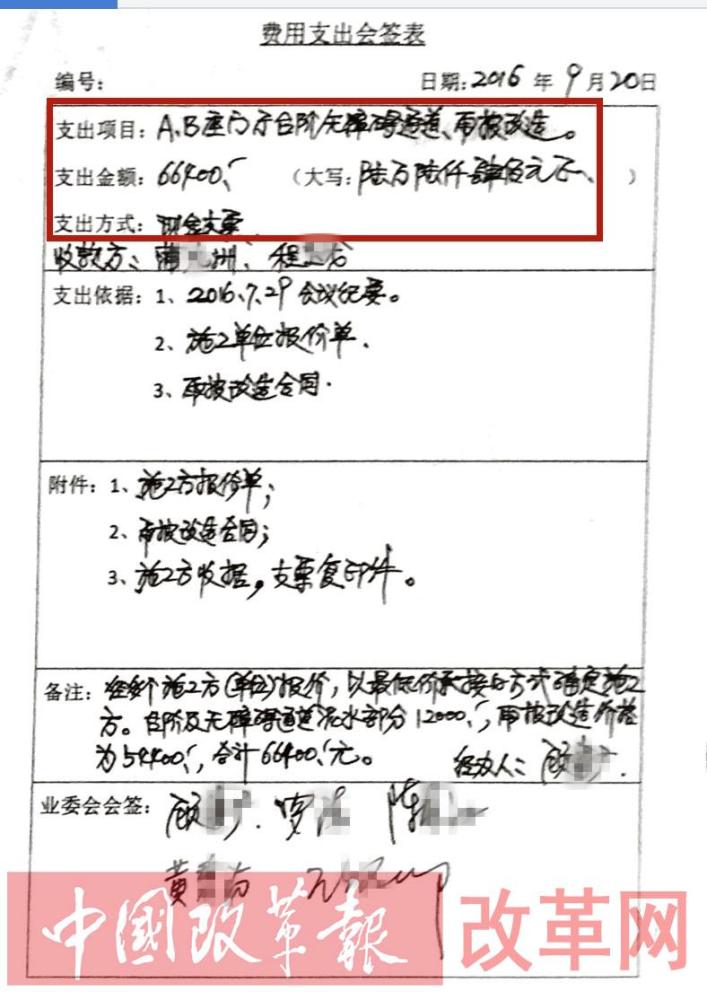 费用支出会签表
编号: 日期:2016 年 9 月 20日
支出项目: A、B座门厅台阶无障碍通道、雨披改造。
支出金额: 66400.- (大写: 陆万陆仟肆佰元正、 )
支出方式: 现金支票
收款方: 洲、 程
支出依据: 1、2016.7.29 会议纪要。
2、施工单位报价单.
3、雨披改造合同.
附件: 1、施工方报价单;
2、雨披改造合同;
3、施工方收据, 支票复印件。
备注: 经多个施工方(单位)报价, 以最低价承接的方式确定施工
方。台阶及无障碍通道泥水部分12000.-, 雨披改造价格
为54400.-, 合计66400.-元。 经办人: 顾
业委会会签: 顾 罗 陈
黄
中國改革報 改革网